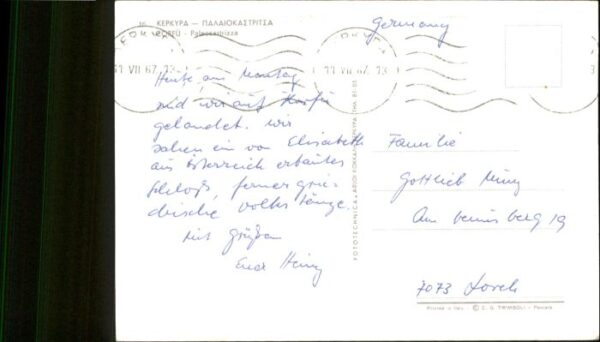 ΚΕΡΚΥΡΑ — ΠΑΛΑΙΟΚΑΣΤΡΙΤΣΑ
CORFU - Paleocastrizza
Germany
11 VII 67 13
11 VII 67 13
Heute, am Montag
sind wir auf Korfu
gelandet. Wir
sahen ein von Elisabeth
aus Österreich erbautes
Schloß, ferner grie-
chische Volkstänze.
Mit Grüßen
Euer Heinz
FOTOTECHNICA
Familie
Gottlieb
Am Venusberg 19
7073 Lorch
Printed in Italy - © C. G. TRIMBOLI - Pescara